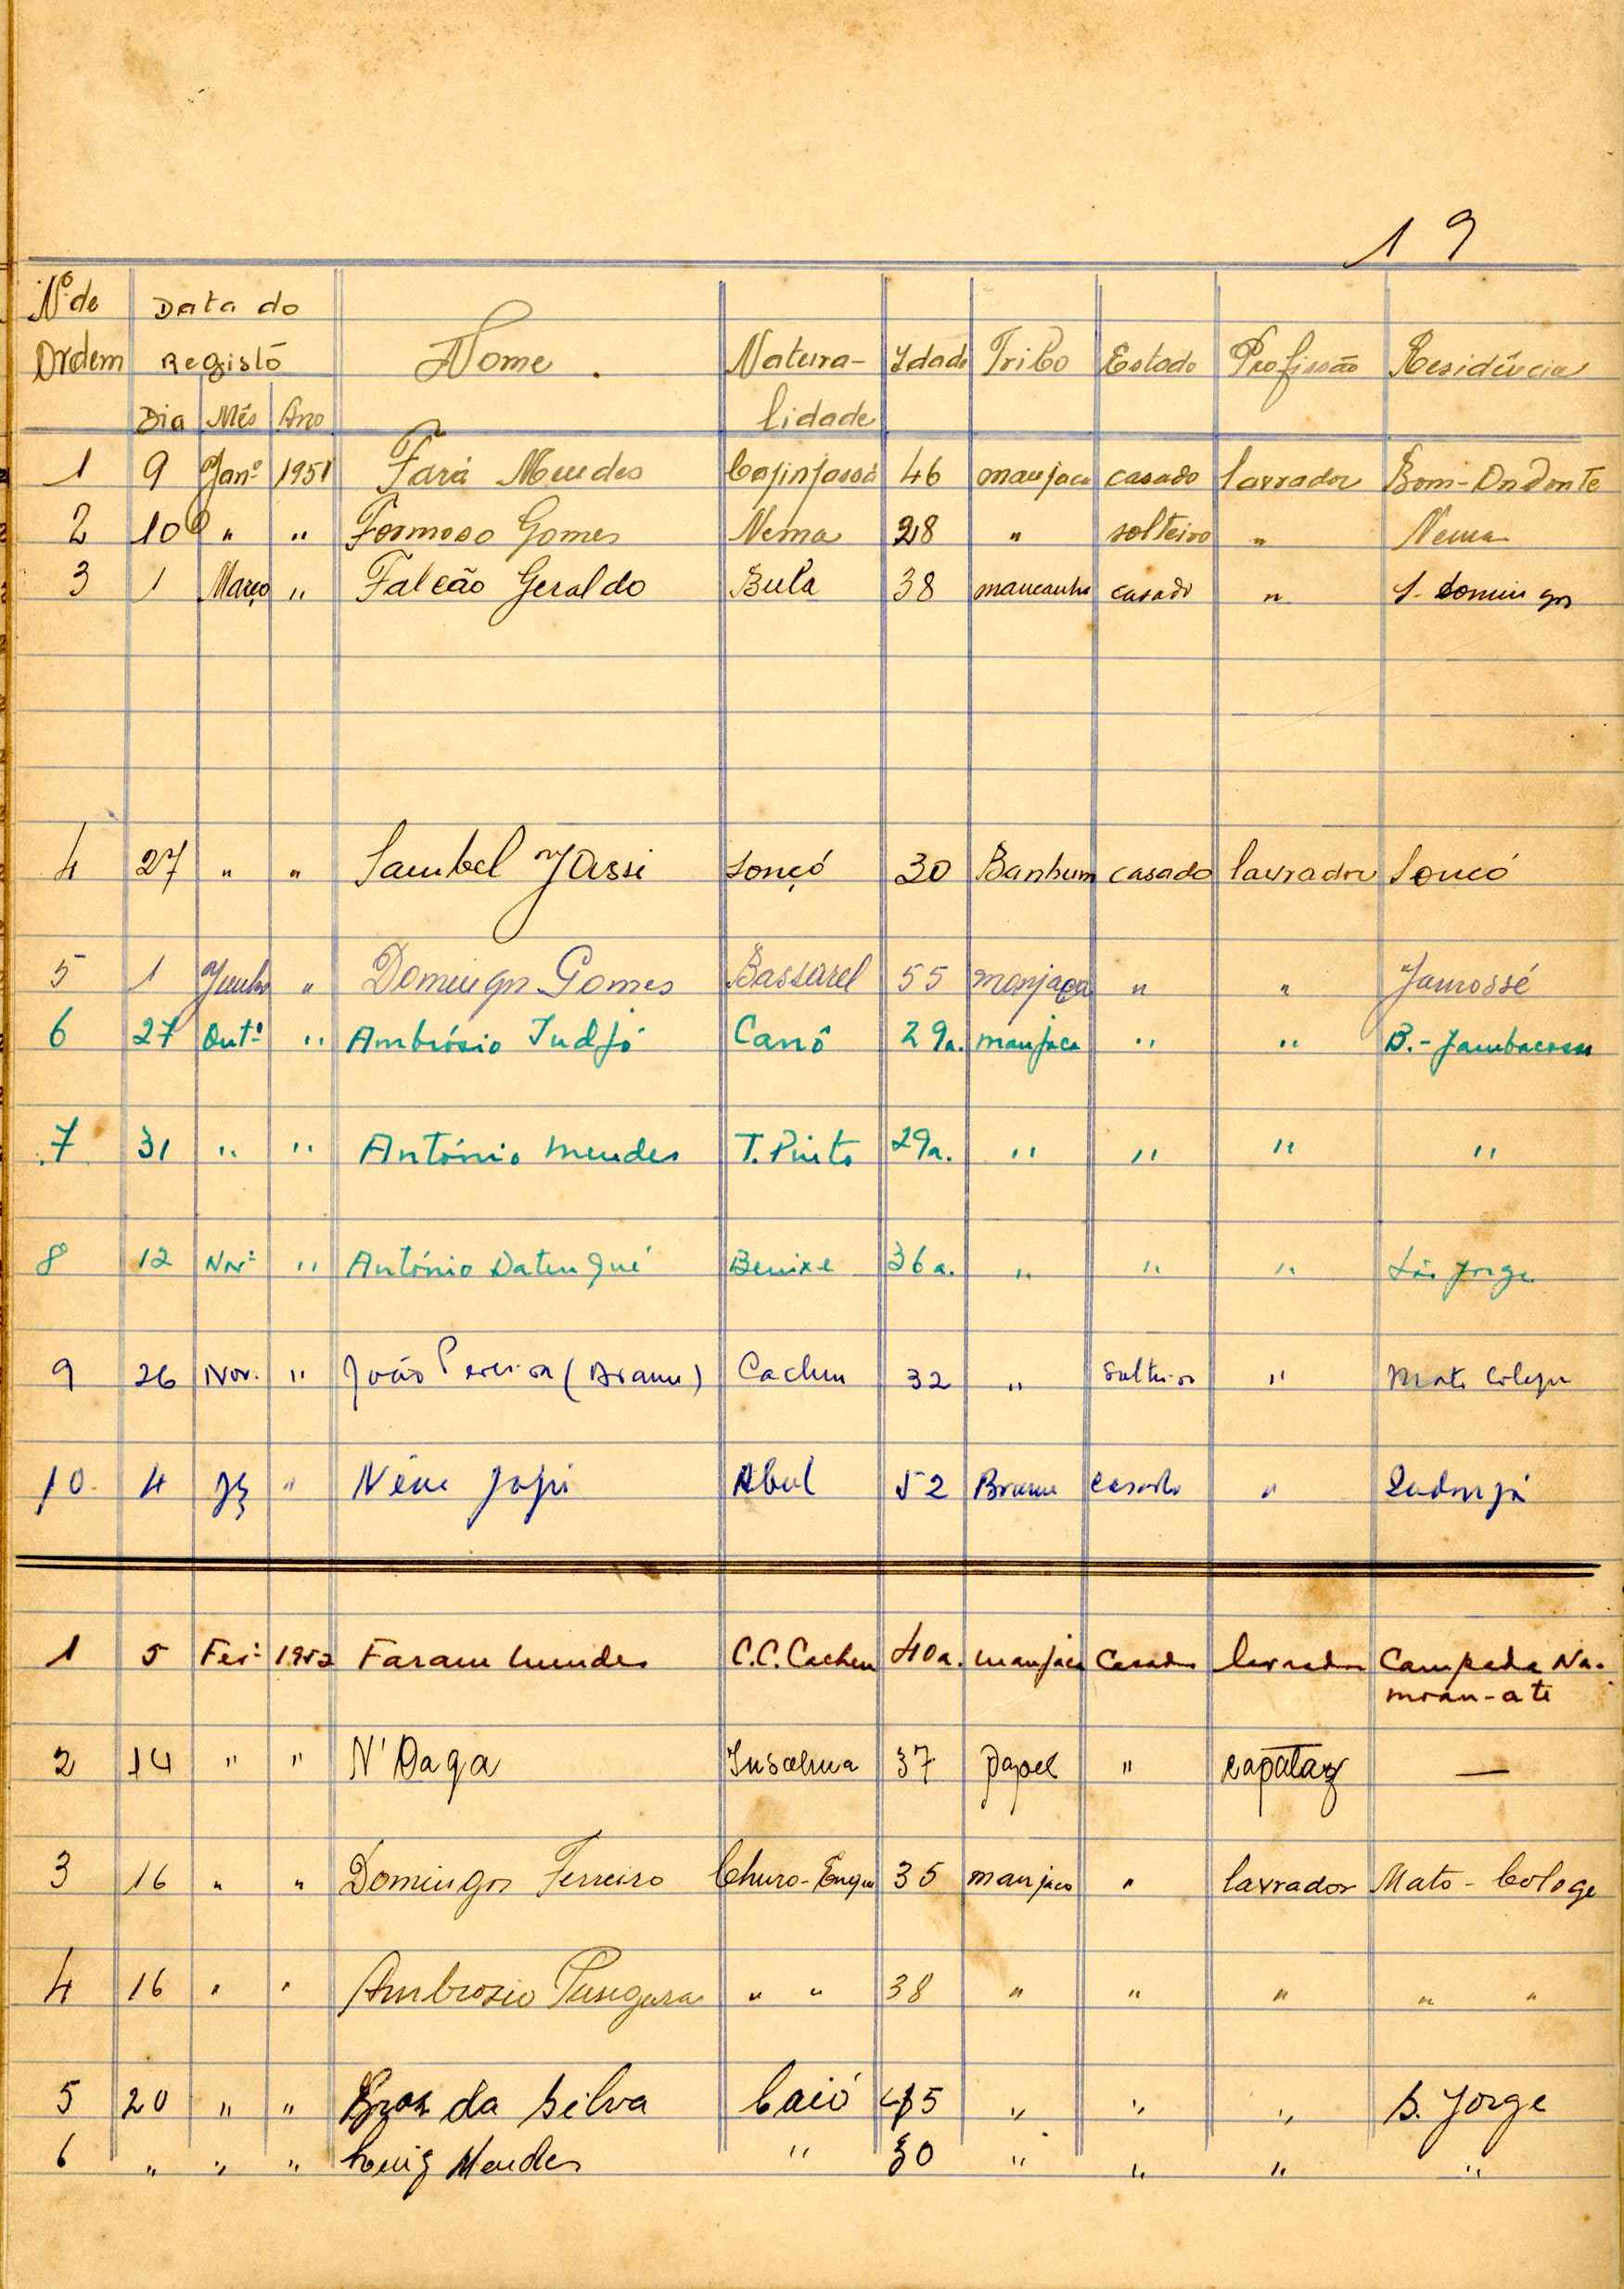 19
Nº de Data do
Ordem Registo Nome. Natura- Idade Tribo Estado Profissão Residência
Dia Mês Ano lidade
1 9 Janº 1951 Fará Mendes Cajinjassá 46 manjaca casado lavrador Bom-Ondonte
2 10 " " Formoso Gomes Nema 28 " solteiro " Nema
3 1 Março " Falcão Geraldo Bula 38 mancanha casado " S. domingos
4 27 " " Sambel Jassi Sonçó 30 Banhum casado lavrador Soncó
5 1 Junho " Domingos Gomes Bassarel 55 manjaca " " Jamossé
6 27 Outº " Ambrósio Indjó Canô 29a. manjaca " " B.-
7 31 " " António mendes T. Pinto 29a. " " " "
8 12 Novº " António Datenqué Benixe 36a. " " " São Jorge
9 26 Nov. " João Pereira (Brame) Cacheu 32 " Solteiro " Mato Coleje
10 4 " 52 Brame Casado "
1 5 Fevº 1952 Faram Mendes C.C.Cacheu 40a. manjaca Casado lavrador Campada Na-
moan-ate
2 14 " " N'Daga 37 papel " capataz —
3 16 " " Domingos Ferreira Churo-Enque 35 manjaco " lavrador Mato-Cologe
4 16 " " Ambrosio " " 38 " " " " "
5 20 " " Braz da Silva Caió 45 " " " S. Jorge
6 " " " Luiz Mendes " 30 " " " "